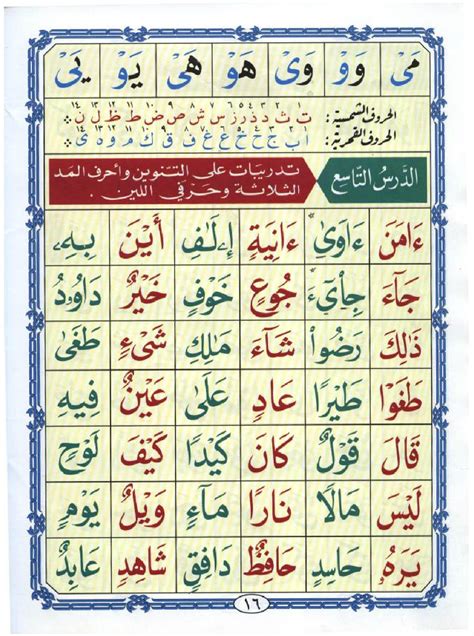 مَىْ وَوْ وَىْ هَوْ هَىْ يَوْ يَىْ
١ ٢ ٣ ٤ ٥ ٦ ٧ ٨ ٩ ١٠ ١١ ١٢ ١٣ ١٤
الحروف الشمسية : ت ث د ذ ر ز س ش ص ض ط ظ ل ن
١ ٢ ٣ ٤ ٥ ٦ ٧ ٨ ٩ ١٠ ١١ ١٢ ١٣ ١٤
الحروف القمرية : ا ب ج ح خ ع غ ف ق ك م و ه ى
الدرس التاسع
تدريبات على التنوين وأحرف المد
الثلاثة وحرفي اللين .
ءَامَنَ ءَاوَىٰ ءَانِيَةٍ إِۦلَٰفِ أَيْنَ بِهِۦ
جَآءَ جِاْىٓءَ جُوعٍ خَوْفٍ خَيْرٌ دَاوُۥدُ
ذَٰلِكَ رَضُوا۟ شَآءَ مَٰلِكِ شَىْءٍ طَغَىٰ
طَغَوْا۟ طَيْرًا عَادٍ عَلَىٰ عَيْنٌ فِيهِ
قَالَ قَوْلٌ كَانَ كَيْدًا كَيْفَ لَوْحٍ
لَيْسَ مَالًا نَارًا مَآءٍ وَيْلٌ يَوْمٍ
يَرَهُۥ حَاسِدٍ حَافِظٌ دَافِقٍ شَاهِدٍ عَابِدٌ
١٦